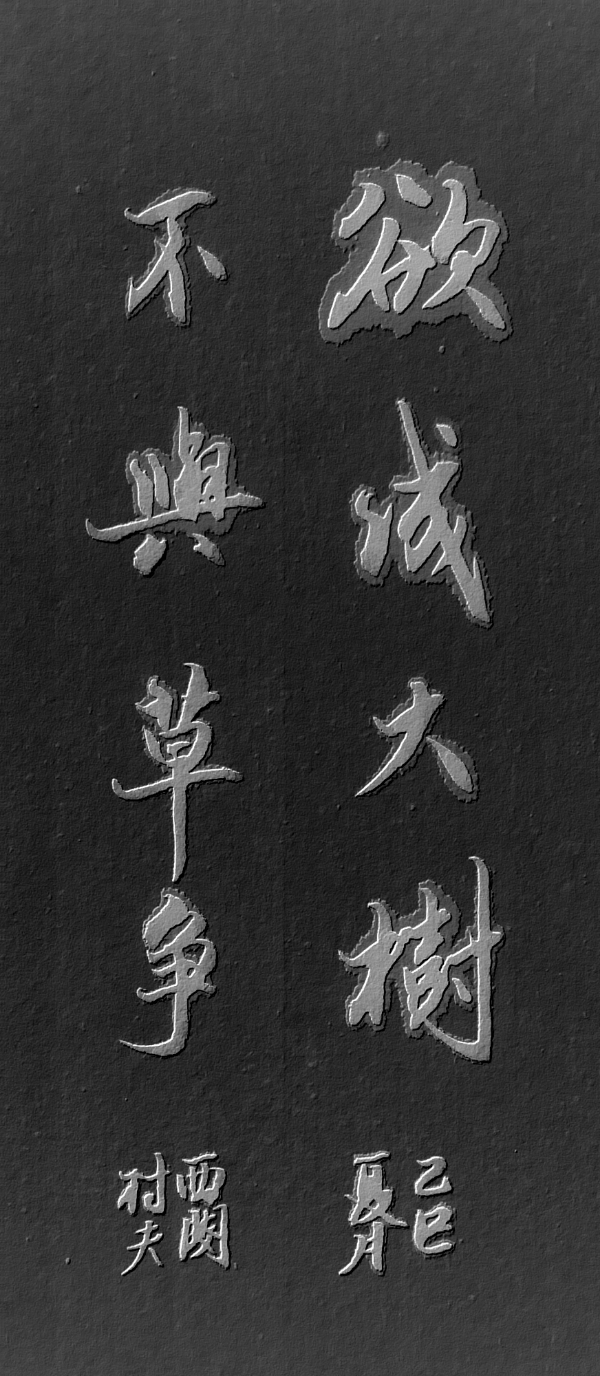 欲成大樹
不與草争
己巳
夏月
西関
村夫